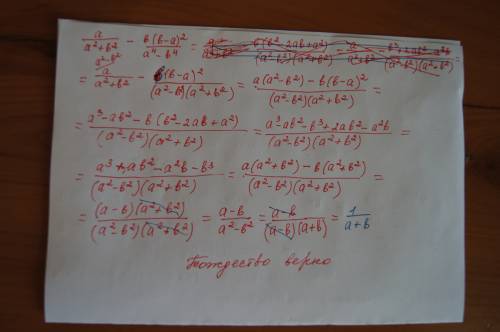 a/(a²+b²) − b(b−a)²/(a⁴−b⁴) =
= a/(a²+b²) − b(b−a)²/((a²−b²)(a²+b²)) = (a(a²−b²) − b(b−a)²)/((a²−b²)(a²+b²)) =
= (a³−ab²−b(b²−2ab+a²))/((a²−b²)(a²+b²)) = (a³−ab²−b³+2ab²−a²b)/((a²−b²)(a²+b²)) =
= (a³+ab²−a²b−b³)/((a²−b²)(a²+b²)) = (a(a²+b²)−b(a²+b²))/((a²−b²)(a²+b²)) =
= ((a−b)(a²+b²))/((a²−b²)(a²+b²)) = (a−b)/(a²−b²) = (a−b)/((a−b)(a+b)) = 1/(a+b)
Тождество верно